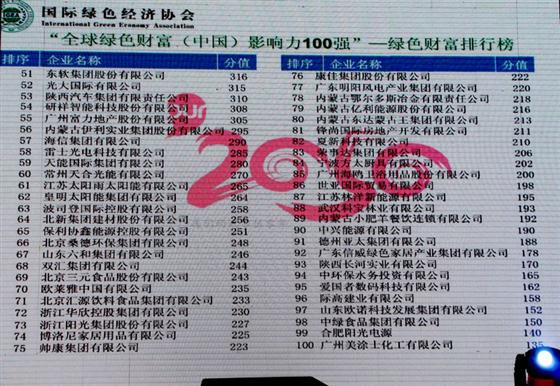 国际绿色经济协会
International Green Economy Association
“全球绿色财富（中国）影响力100强”—绿色财富排行榜
排序 企业名称 分值
51 东软集团股份有限公司 316
52 光大国际有限公司 315
53 陕西汽车集团有限责任公司 310
54 研祥智能科技股份有限公司 308
55 广州富力地产股份有限公司 305
56 内蒙古伊利实业集团股份有限公司 295
57 海信集团有限公司 290
58 雷士光电科技有限公司 285
59 天能国际集团有限公司 280
60 常州天合光能有限公司 270
61 江苏太阳雨太阳能有限公司 265
62 皇明太阳能集团有限公司 264
63 波司登国际控股有限公司 258
64 北新集团建材股份有限公司 256
65 保利协鑫能源控股有限公司 251
66 北京桑德环保集团有限公司 248
67 山东六和集团有限公司 248
68 双汇集团有限公司 244
69 北京三元食品股份有限公司 243
70 欧莱雅中国有限公司 235
71 北京汇源饮料食品集团有限公司 233
72 浙江华欣控股集团有限公司 230
73 浙江阳光集团股份有限公司 227
74 博洛尼家居用品有限公司 225
75 帅康集团有限公司 223
排序 企业名称 分值
76 康佳集团股份有限公司 222
77 广东明阳风电产业集团有限公司 220
78 内蒙古鄂尔多斯冶金有限责任公司 218
79 内蒙古亿利能源股份有限公司 218
80 内蒙古东达蒙古王集团有限公司 216
81 锋尚国际房地产开发有限公司 211
82 夏新科技有限公司 210
83 有限公司 206
84 宁波方太厨具有限公司 202
85 广州海鸥卫浴用品股份有限公司 200
86 世亚国际贸易有限公司 198
87 江苏林洋新能源有限公司 195
88 武汉科宝林业有限公司 193
89 内蒙古小肥羊餐饮连锁有限公司 192
90 中兴能源有限公司 190
91 德州亚太集团有限公司 188
92 广东信威绿色家居产业集团有限公司 178
93 陕西长河实业有限公司 170
94 中环保水务投资有限公司 165
95 爱国者数码科技有限公司 160
96 际高建业有限公司 158
97 山东欧诺科技发展集团有限公司 152
98 中绿食品集团有限公司 150
99 合肥阳光电源 140
100 广州美涂士化工有限公司 135